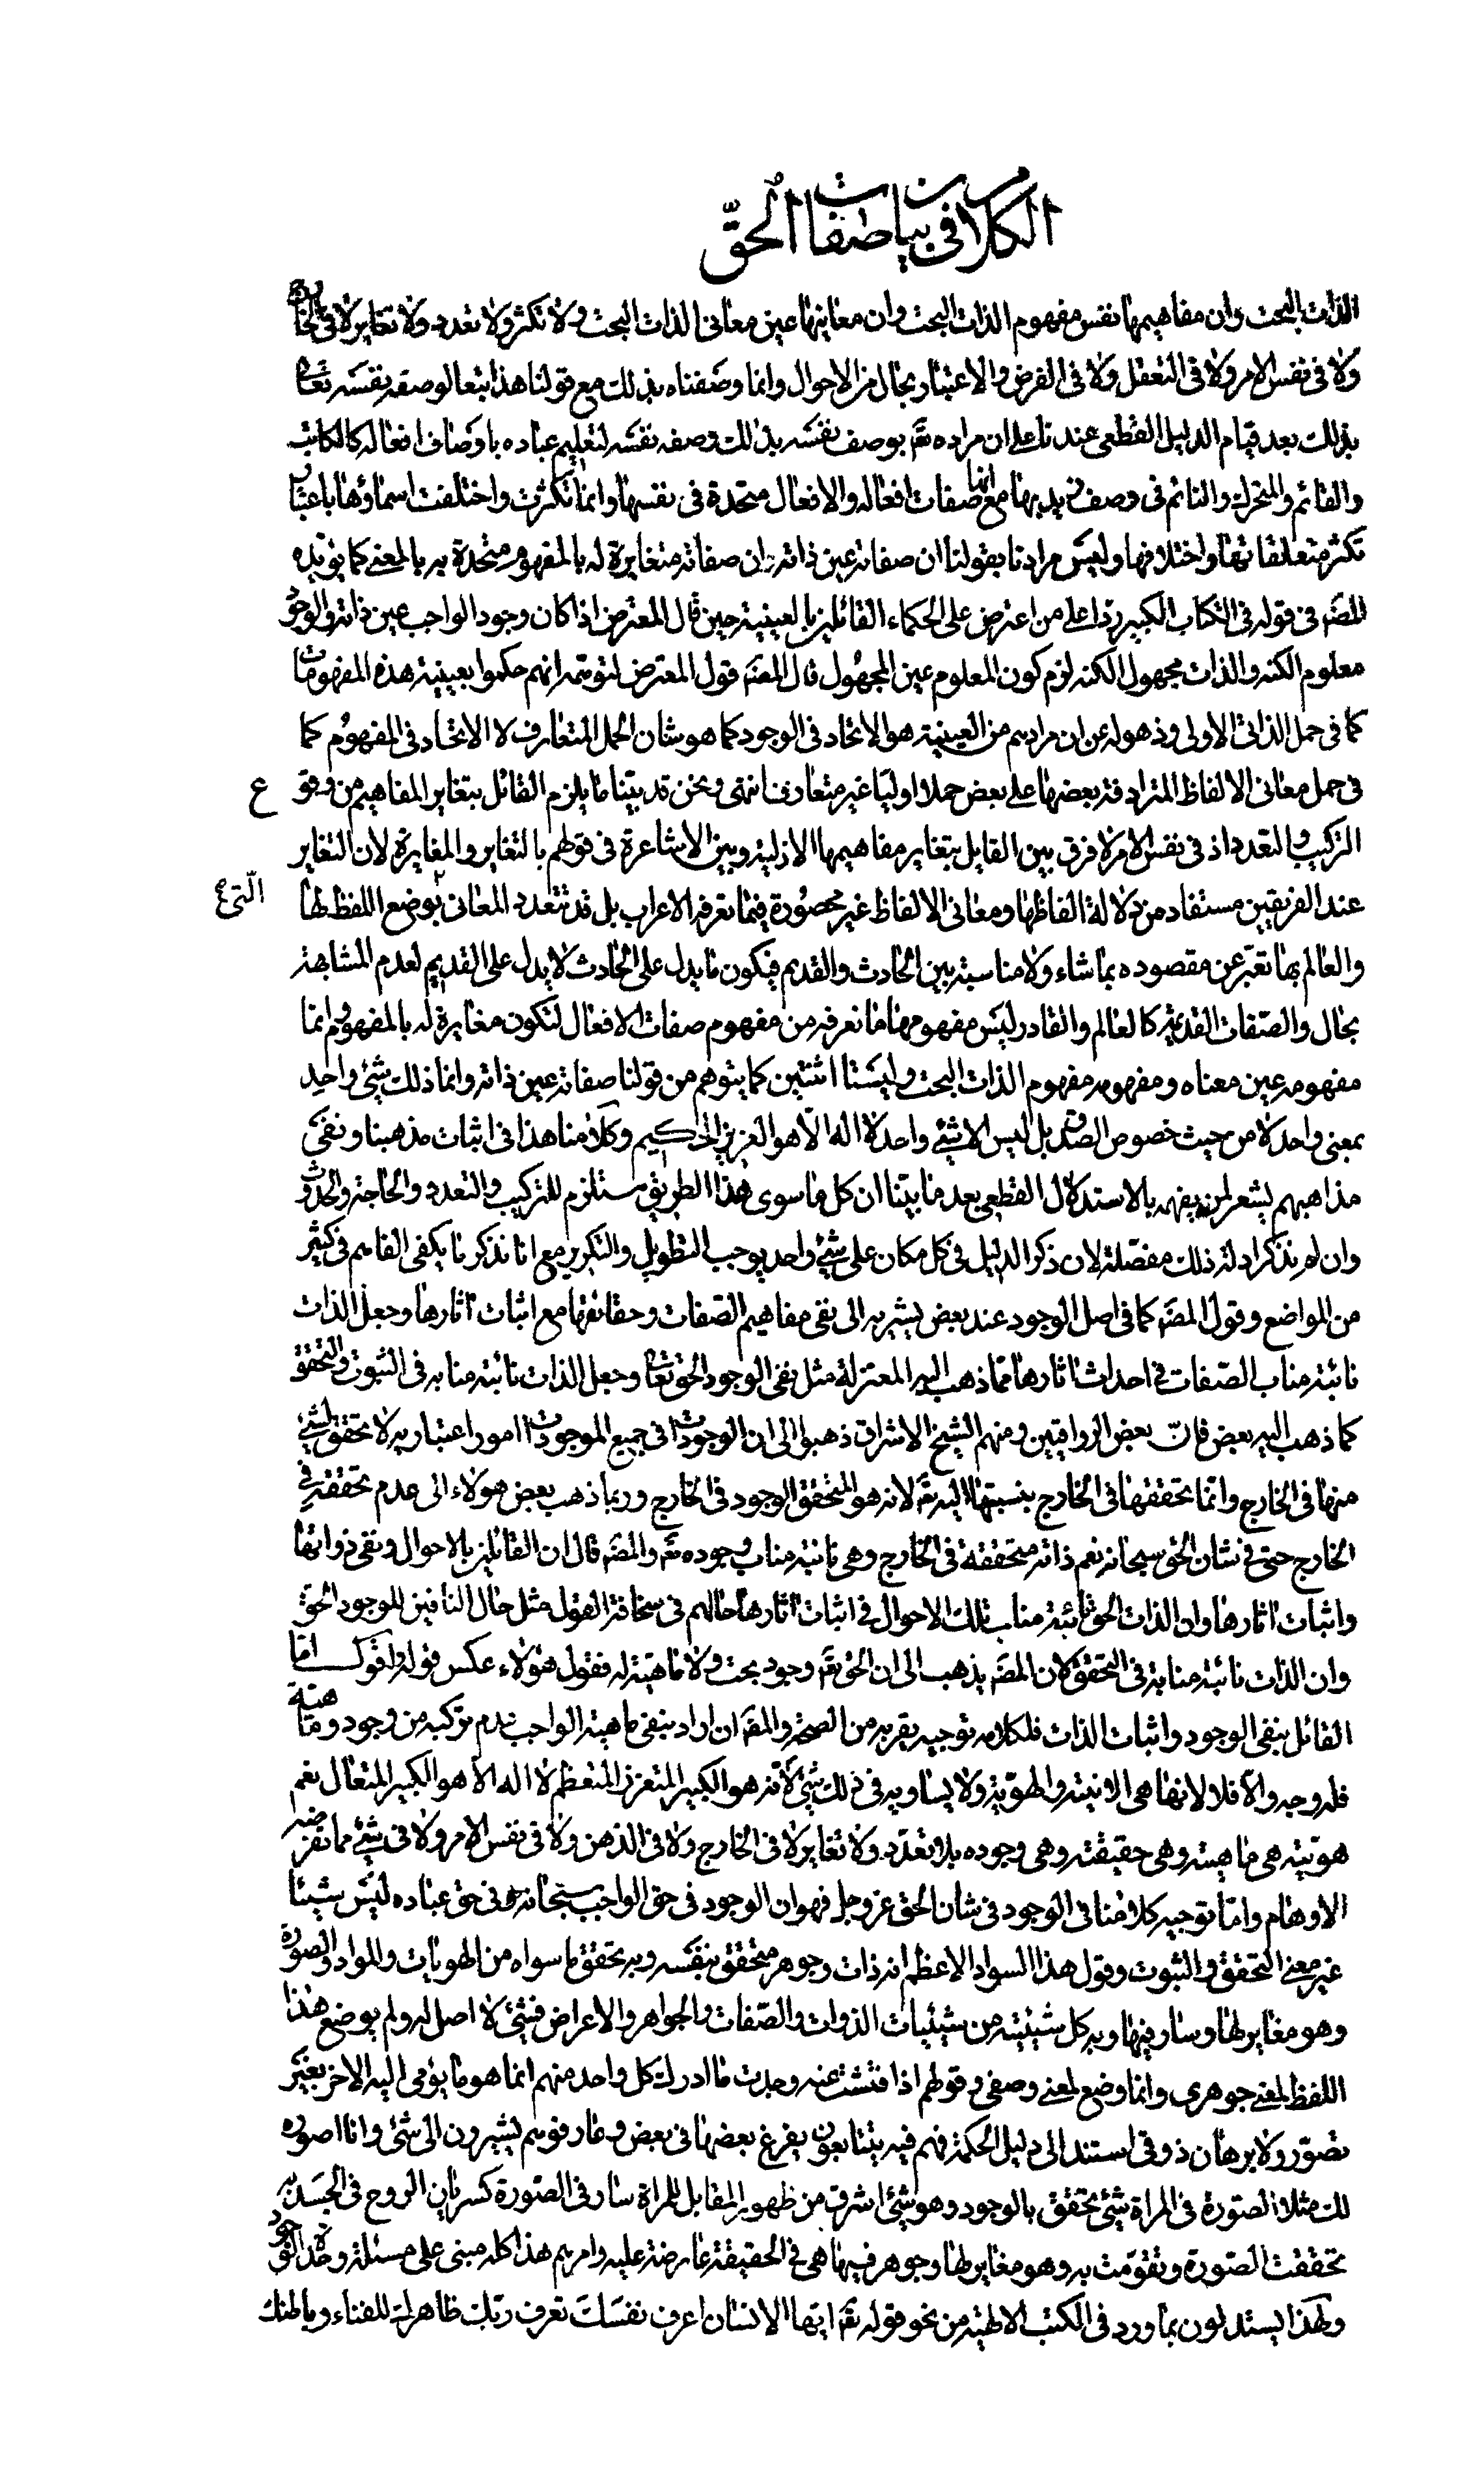 الكلام في بيان صفات الحق
الذات البحت وان مفاهيمها نفس مفهوم الذات البحت وان معانيها عين معانى الذات البحت ولا تكثر ولا تعدد ولا تغاير لا في الخارج
ولا فى نفس الامر ولا فى التعقل ولا فى الفرض والاعتبار بحال من الاحوال وانما وصفناه بذلك مع قولنا هذا تبعا لوصفه نفسه تعالى
بذلك بعد قيام الدليل القطعى عندنا على ان مراده تعَ بوصف نفسه بذلك وصفه نفسه لتعليم عباده باوصاف افعاله كالكاتب
والقائم والمتحرك والنائم فى وصف زيد بها مع انها صفات افعاله والافعال متحدة فى نفسها وانما تكثرت واختلفت اسماؤها باعتبار
تكثر متعلقاتها واختلافها وليس مرادنا بقولنا ان صفاته عين ذاته ان صفاته متغايرة له بالمفهوم متحدة به بالمعنى كما يؤيده
المصَ فى قوله فى الكتاب الكبير ردا على من اعترض على الحكماء القائلين بالعينية حين قال المعترض اذا كان وجود الواجب عين ذاته والوجود
معلوم الكنه والذات مجهول الكنه لزم كون المعلوم عين المجهول قال المصَ قول المعترض لتوهمه انهم حكموا بعينية هذه المفهومات
كما فى حمل الذاتى الاولى وذهوله عن ان مرادهم من العينية هو الاتحاد فى الوجود كما هو شان الحمل المتعارف لا الاتحاد فى المفهوم كما
فى حمل معانى الالفاظ المترادفة بعضها على بعض حملا اوليا غير متعارف انتهى ونحن قد بيّنا ما يلزم القائل بتغاير المفاهيم من وقو ع
التركيب والتعدد اذ فى نفس الامر لا فرق بين القايل بتغاير مفاهيمها الازلية وبين الاشاعرة فى قولهم بالتغاير والمغايرة لان التغاير
عند الفريقين مستفاد من دلالة الفاظها ومعانى الالفاظ غير محصورة فيما تعرفه الاعراب بل قد تتعدد المعانى بوضع اللفظ لها الّتى
والعالم بها تعبّر عن مقصوده بما شاء ولا مناسبة بين الحادث والقديم فيكون ما يدل على الحادث لا يدل على القديم لعدم المشابهة
بحال والصّفات القديمة كالعالم والقادر ليس مفهومها ما نعرفه من مفهوم صفات الافعال لتكون مغايرة له بالمفهوم انما
مفهومه عين معناه ومفهومه مفهوم الذات البحت وليستا اثنتين كما يتوهم من قولنا صفاته عين ذاته وانما ذلك شئ واحد
بمعنى واحد لا من حيث خصوص الصدق بل ليس الا شئ واحد لا اله الا هو العزيز الحكيم وكلامنا هذا فى اثبات مذهبنا ونفى
مذاهبهم يشعر لمن يفهمه بالاستدلال القطعى بعد ما بيّنا ان كل ما سوى هذا الطريق مستلزم للتركيب والتعدد والحاجة والحدوث
وان لم نذكر ادلة ذلك مفصّلة لان ذكر الدليل فى كل مكان على شئ واحد يوجب التطويل والتكرير مع انا نذكر ما يكفى الفاهم فى كثير
من المواضع وقول المصَ كما فى اصل الوجود عند بعض يشير به الى نفى مفاهيم الصّفات وحقائقها مع اثبات اثارها وجعل الذات
نائبة مناب الصّفات فى احداث اثارها ممّا ذهب اليه المعتزلة مثل نفى الوجود الحق تعالى وجعل الذات نائبة منابه فى الثبوت والتحقق
كما ذهب اليه بعض فانّ بعض الرواقيين ومنهم الشيخ الاشراق ذهبوا الى ان الوجودات فى جميع الموجودات امور اعتبارية لا تحقق لشئ
منها فى الخارج وانّما تحققها فى الخارج بنسبتها اليه تعَ لانه هو المتحقق الوجود فى الخارج وربما ذهب بعض هؤلاء الى عدم تحققه فى
الخارج حتى فى شان الحق سبحانه نعم ذاته متحققة فى الخارج وهى نائبة مناب وجوده تعَ والمصَ قال ان القائلين بالاحوال ونفى ذواتها
واثبات اثارها وان الذات الحق نائبة مناب تلك الاحوال فى اثبات اثارها حالهم فى سخافة القول مثل حال النافين للوجود الحق
وان الذات نائبة منابه فى التحقق لان المصَ يذهب الى ان الحق تعَ وجود بحت ولا ماهيّة له فقول هؤلاء عكس قوله واقول امّا
القائل بنفى الوجود واثبات الذات فلكلامه توجيه يقربه من الصحة والمصَ ان اراد بنفى ماهية الواجب عدم تركبه من وجود وماهيّة
فله وجه والّا فلا لانها هى الانية والهويّة ولا يساويه فى ذلك شئ لانّه هو الكبير المتعزز المتعظم لا اله الا هو الكبير المتعال نعم
هويّته هى ماهيته وهى حقيقته وهى وجوده بلا تعدّد ولا تغاير لا فى الخارج ولا فى الذهن ولا فى نفس الامر ولا فى شئ مما تفرضه
الاوهام وامّا توجيه كلامنا فى الوجود فى شان الحق عز وجل فهو ان الوجود فى حق الواجب سبحانه وفى حق عباده ليس شيئا
غير معنى التحقق والثبوت وقول هذا السواد الاعظم انه ذات وجوهر متحقق بنفسه وبه تحقق ما سواه من الهويات والمواد والصورة
وهو مغاير لها وسار فيها وبه كل شيئية من شيئيات الذوات والصّفات والجواهر والاعراض فشئ لا اصل له ولم يوضع هذا
اللفظ لمعنى جوهرى وانما وضع لمعنى وصفى وقولهم اذا فتشت عنه وجدت ما ادرك كل واحد منهم انما هو ما يؤمى اليه الاخر بغير
تصوّر ولا برهان ذوقى استند الى دليل الحكمة فهم فيه يتتابعون يفرغ بعضها فى بعض وعارفوهم يشيرون الى شئ وانا اصوره
لك مثلا الصّورة فى المراة شئ تحقق بالوجود وهو شئ اشرق من ظهور المقابل للمراة سار فى الصّورة كسريان الروح فى الجسد به
تحققت الصّورة وتقوّمت به وهو مغاير لها وجوهر فيها هى فى الحقيقة عارضة عليه وامرهم هذا كله مبنى على مسئلة وحدة الوجود
ولهذا يستدلون بما ورد فى الكتب الالهية من نحو قوله تعَ ايّها الانسان اعرف نفسك تعرف ربّك ظاهرك للفناء وباطنك